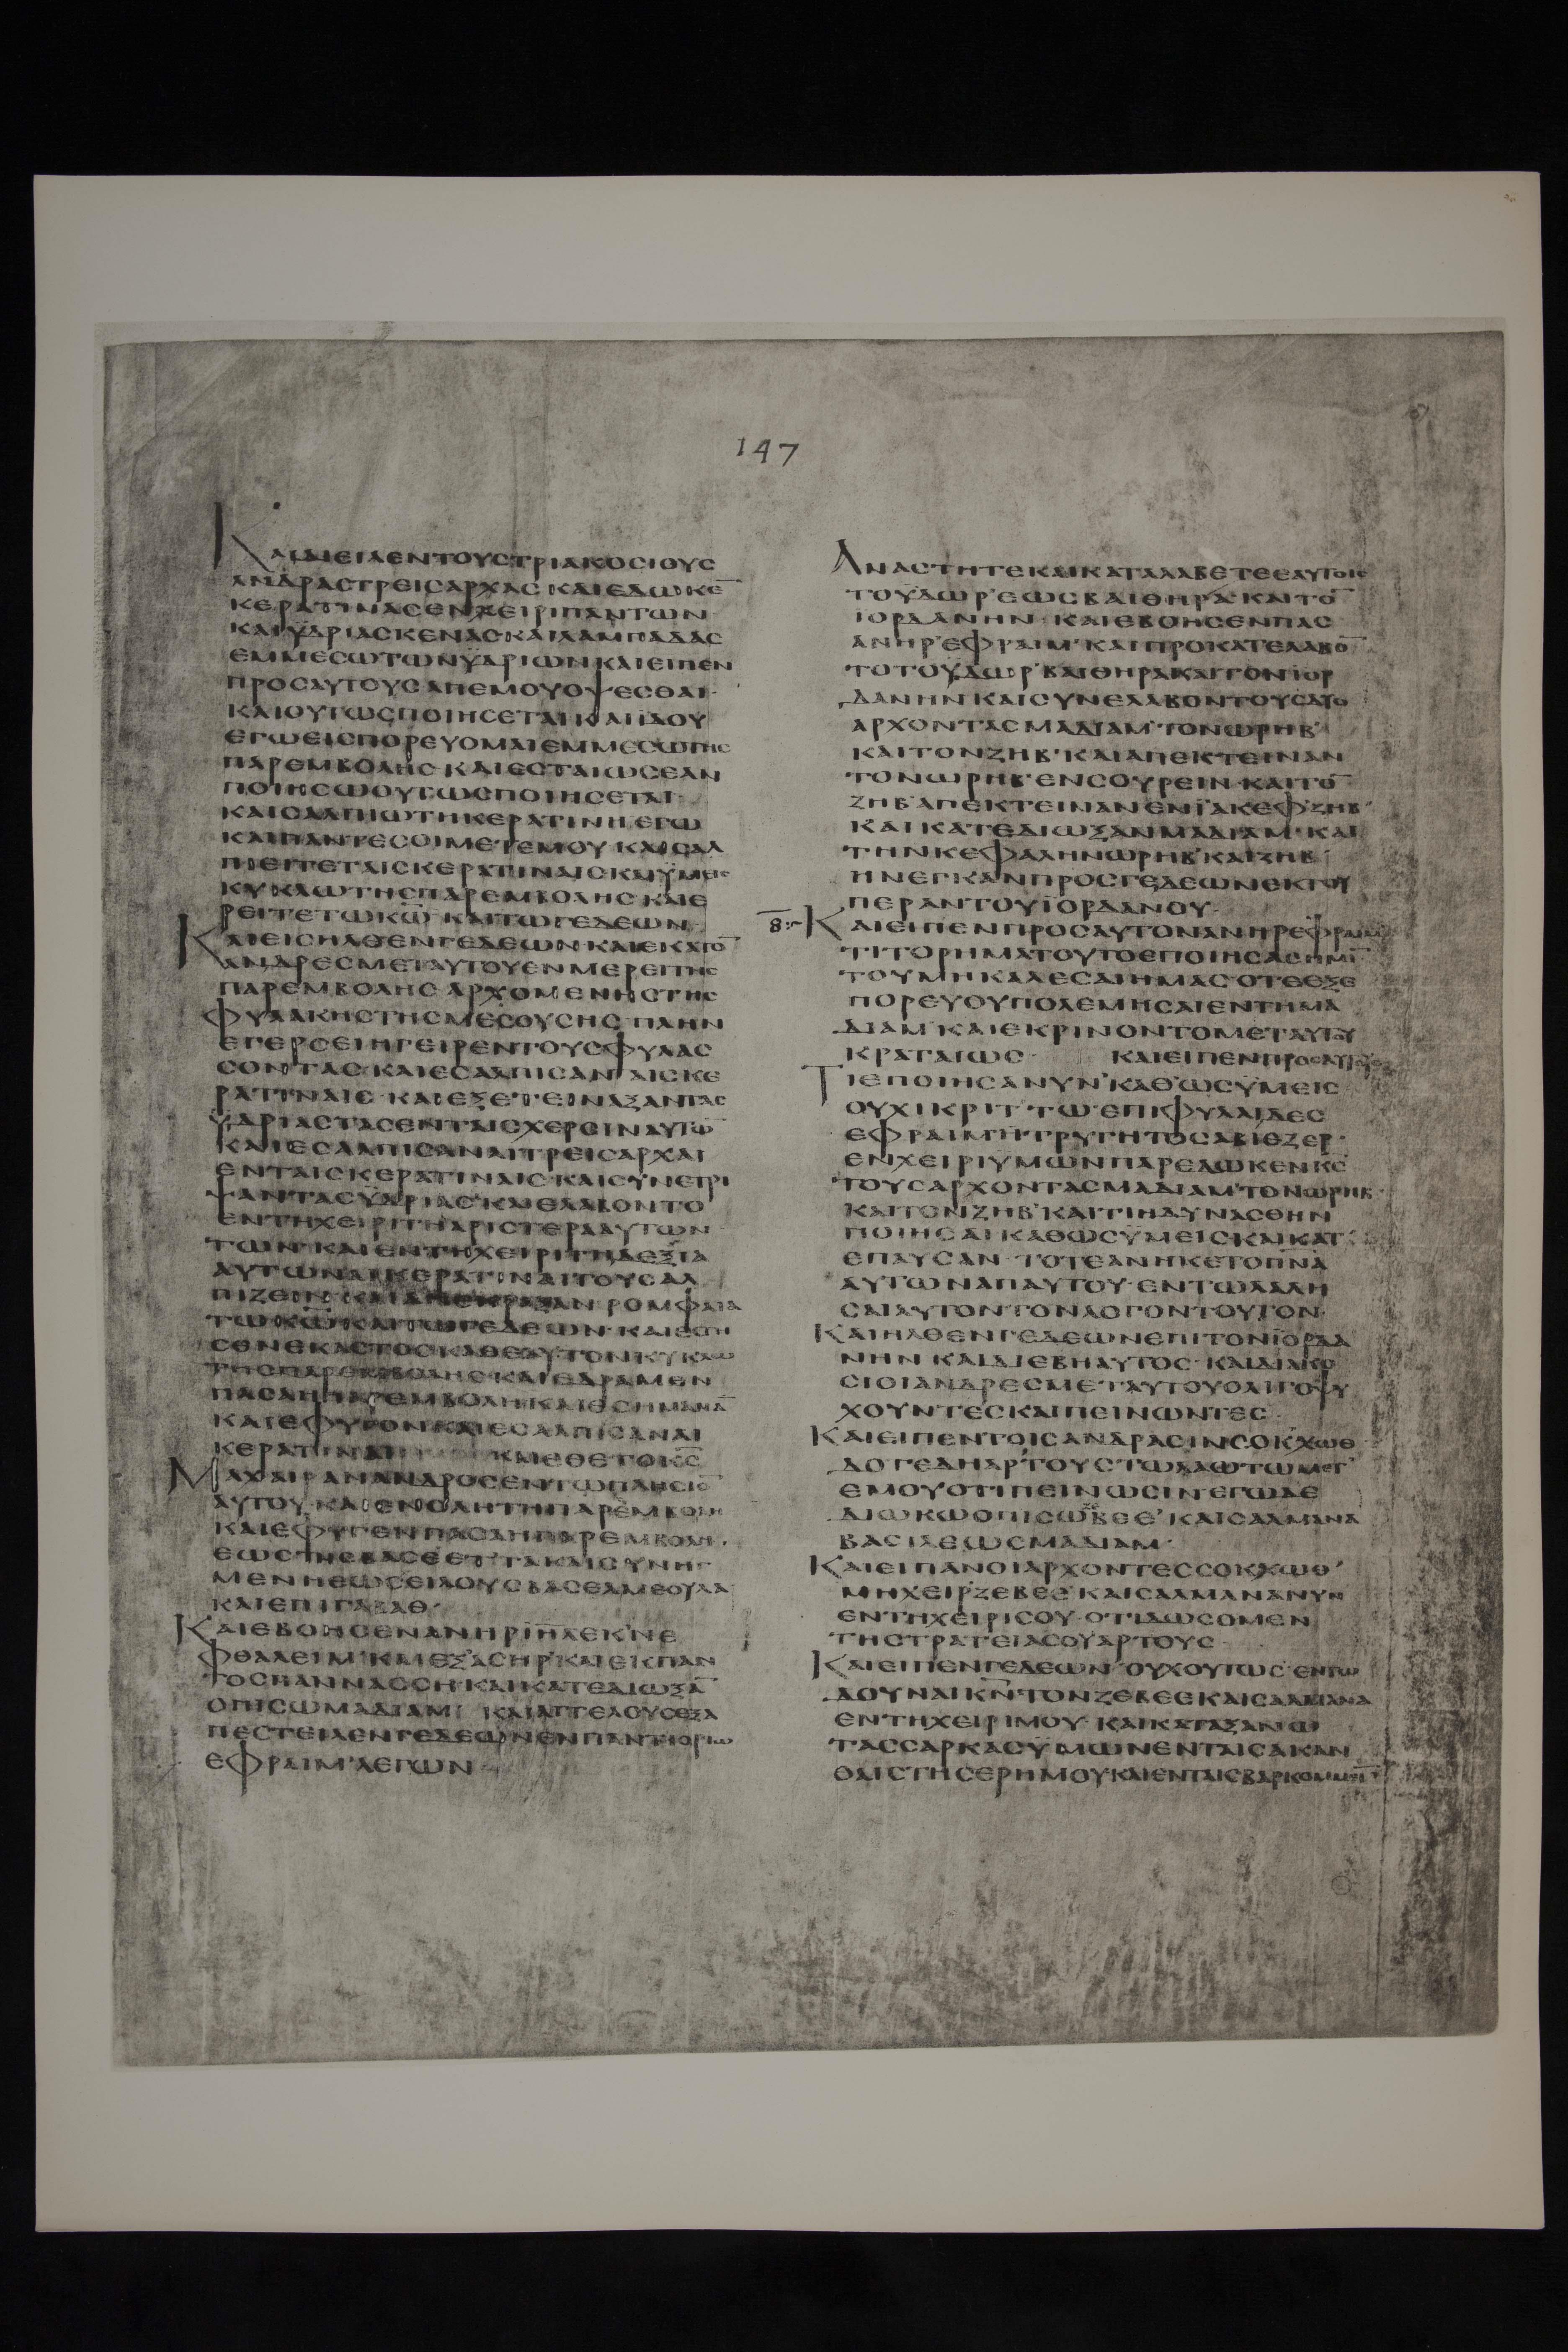 147
ΚΑΙΔΙΕΙΛΕΝΤΟΥΣΤΡΙΑΚΟΣΙΟΥΣ
ΑΝΔΡΑΣΤΡΕΙΣΑΡΧΑΣ ΚΑΙΕΔΩΚΕ̅
ΚΕΡΑΤΙΝΑΣΕΝΧΕΙΡΙΠΑΝΤΩΝ
ΚΑΙΫΔΡΙΑΣΚΕΝΑΣΚΑΙΛΑΜΠΑΔΑΣ
ΕΜΜΕΣΩΤΩΝΫΔΡΙΩΝΚΑΙΕΙΠΕΝ
ΠΡΟΣΑΥΤΟΥΣΑΠΕΜΟΥΟΨΕΣΘΑΙ·
ΚΑΙΟΥΤΩΣΠΟΙΗΣΕΤΑΙΚΑΙΪΔΟΥ
ΕΓΩΕΙΣΠΟΡΕΥΟΜΑΙΕΜΜΕΣΩΤΗΣ
ΠΑΡΕΜΒΟΛΗΣ ΚΑΙΕΣΤΑΙΩΣΕΑΝ
ΠΟΙΗΣΩΟΥΤΩΣΠΟΙΗΣΕΤΑΙ·
ΚΑΙΣΑΛΠΙΩΤΗΚΕΡΑΤΙΝΗΕΓΩ
ΚΑΙΠΑΝΤΕΣΟΙΜΕΤΕΜΟΥ ΚΑΙΣΑΛ
ΠΙΕΙΤΕΤΑΙΣΚΕΡΑΤΙΝΑΙΣΚΑΙΫΜΕΙΣ
ΚΥΚΛΩΤΗΣΠΑΡΕΜΒΟΛΗΣ ΚΑΙΕ
ΡΕΙΤΕΤΩΚ̅Ω̅ ΚΑΙΤΩΓΕΔΕΩΝ
ΚΑΙΕΙΣΗΛΘΕΝΓΕΔΕΩΝΚΑΙΕΚΑΤΟ̅
ΑΝΔΡΕΣΜΕΤΑΥΤΟΥΕΝΜΕΡΕΙΤΗΣ
ΠΑΡΕΜΒΟΛΗΣ ΑΡΧΟΜΕΝΗΣΤΗΣ
ΦΥΛΑΚΗΣΤΗΣΜΕΣΟΥΣΗΣ ΠΛΗΝ
ΕΓΕΡΣΕΙΗΓΕΙΡΕΝΤΟΥΣΦΥΛΑΣ
ΣΟΝΤΑΣ ΚΑΙΕΣΑΛΠΙΣΑΝ ΑΙΣΚΕ
ΡΑΤΙΝΑΙΣ ΚΑΙΕΞΕΤΕΙΝΑΞΑΝΤΑΣ
ΫΔΡΙΑΣΤΑΣΕΝΤΑΙΣΧΕΡΣΙΝΑΥΤΩ̅
ΚΑΙΕΣΑΛΠΙΣΑΝΑΙΤΡΕΙΣΑΡΧΑΙ
ΕΝΤΑΙΣΚΕΡΑΤΙΝΑΙΣΚΑΙΣΥΝΕΤΡΙ
ΨΑΝΤΑΣΫΔΡΙΑΣ ΚΑΙΕΛΑΒΟΝΤΟ
ΕΝΤΗΧΕΙΡΙΤΗΑΡΙΣΤΕΡΑΑΥΤΩΝ
ΤΩΝ ΚΑΙΕΝΤΗΧΕΙΡΙΤΗΔΕΞΙΑ
ΑΥΤΩΝΑΙΚΕΡΑΤΙΝΑΙΤΟΥΣΑΛ
ΠΙΖΕΙΝ ΚΑΙΑΝΕΚΡΑΞΑΝ ΡΟΜΦΑΙΑ
ΤΩΚ̅Ω̅ ΚΑΙΤΩΓΕΔΕΩΝ·ΚΑΙΕΣΤΗ
ΣΕΝΕΚΑΣΤΟΣΚΑΘΕΑΥΤΟΝΚΥΚΛΩ
ΤΗΣΠΑΡΕΜΒΟΛΗΣΚΑΙΕΔΡΑΜΕΝ
ΠΑΣΑΗΠΑΡΕΜΒΟΛΗΚΑΙΕΣΗΜΑΝΑ̅
ΚΑΙΕΦΥΓΟΝΚΑΙΕΣΑΛΠΙΣΑΝΑΙ
ΚΕΡΑΤΙΝΑΙ ΚΑΙΕΘΕΤΟΚ̅Σ̅
ΜΑΧΑΙΡΑΝΑΝΔΡΟΣΕΝΤΩΠΛΗΣΙΟ̅
ΑΥΤΟΥ ΚΑΙΕΝΟΛΗΤΗΠΑΡΕΜΒΟΛΗ
ΚΑΙΕΦΥΓΕΝΠΑΣΑΗΠΑΡΕΜΒΟΛΗ·
ΕΩΣΤΗΣΒΑΣΕΕΤΤΑΚΑΙΣΥΝΗΓ
ΜΕΝΗΕΩΣΕΙΛΟΥΣΒΑΣΕΛΜΕΟΥΛΑ
ΚΑΙΕΠΙΓΑΒΑΘ·
ΚΑΙΕΒΟΗΣΕΝΑΝΗΡΙ̅Η̅Λ̅ΕΚ ΝΕ
ΦΘΑΛΕΙΜ ΚΑΙΕΞΑΣΗΡ ΚΑΙΕΚΠΑΝ
ΤΟΣΜΑΝΝΑΣΣΗ ΚΑΙΚΑΤΕΔΙΩΞΑ̅
ΟΠΙΣΩΜΑΔΙΑΜ ΚΑΙΑΓΓΕΛΟΥΣΕΞΑ
ΠΕΣΤΕΙΛΕΝΓΕΔΕΩΝΕΝΠΑΝΤΙΟΡΙΩ
ΕΦΡΑΙΜ ΛΕΓΩΝ·
ΑΝΑΣΤΗΤΕΚΑΙΚΑΤΑΛΑΒΕΤΕΕΑΥΤΟΙΣ
ΤΟΫΔΩΡ ΕΩΣΒΑΙΘΗΡΑ ΚΑΙΤΟ̅
ΪΟΡΔΑΝΗΝ ΚΑΙΕΒΟΗΣΕΝΠΑΣ
ΑΝΗΡ ΕΦΡΑΙΜ ΚΑΙΠΡΟΚΑΤΕΛΑΒΟ̅
ΤΟΤΟΥΔΩΡ ΒΑΙΘΗΡΑΚΑΙΤΟΝΪΟΡ
ΔΑΝΗΝΚΑΙΣΥΝΕΛΑΒΟΝΤΟΥΣΔΥΟ
ΑΡΧΟΝΤΑΣΜΑΔΙΑΜ ΤΟΝΩΡΗΒ
ΚΑΙΤΟΝΖΗΒ ΚΑΙΑΠΕΚΤΕΙΝΑΝ
ΤΟΝΩΡΗΒ ΕΝΣΟΥΡΕΙΝ ΚΑΙΤΟ̅
ΖΗΒ ΑΠΕΚΤΕΙΝΑΝΕΝΪΑΚΕΦΖΗΒ
ΚΑΙΚΑΤΕΔΙΩΞΑΝΜΑΔΙΑΜ ΚΑΙ
ΤΗΝΚΕΦΑΛΗΝΩΡΗΒ ΚΑΙΖΗΒ
ΗΝΕΓΚΑΝΠΡΟΣΓΕΔΕΩΝΕΚΤΟΥ
ΠΕΡΑΝΤΟΥΪΟΡΔΑΝΟΥ·
8 ΚΑΙΕΙΠΕΝΠΡΟΣΑΥΤΟΝΑΝΗΡΕΦΡΑΙΜ
ΤΙΤΟΡΗΜΑΤΟΥΤΟΕΠΟΙΗΣΑΣΗΜΙ̅
ΤΟΥΜΗΚΑΛΕΣΑΙΗΜΑΣΟΤΕΕΞΕ
ΠΟΡΕΥΟΥΠΟΛΕΜΗΣΑΙΕΝΤΗΜΑ
ΔΙΑΜ ΚΑΙΕΚΡΙΝΟΝΤΟΜΕΤΑΥΤΟΥ
ΚΡΑΤΑΙΩΣ· ΚΑΙΕΙΠΕΝΠΡΟΣΑΥΤΟΥΣ
ΤΙΕΠΟΙΗΣΑΝΥΝ ΚΑΘΩΣΥΜΕΙΣ
ΟΥΧΙΚΡΙΤ ΤΩ ΕΠΙΦΥΛΛΙΔΕΣ
ΕΦΡΑΙΜΗΤΡΥΓΗΤΟΣΑΒΙΕΖΕΡ·
ΕΝΧΕΙΡΙΥΜΩΝΠΑΡΕΔΩΚΕΝΚ̅Σ̅
ΤΟΥΣΑΡΧΟΝΤΑΣΜΑΔΙΑΜ ΤΟΝΩΡΗΒ
ΚΑΙΤΟΝΖΗΒ ΚΑΙΤΙΗΔΥΝΑΣΘΗΝ
ΠΟΙΗΣΑΙΚΑΘΩΣΫΜΕΙΣΚΑΙΚΑΤ
ΕΠΑΥΣΑΝ ΤΟΤΕΑΝΗΚΕΤΟΠ̅Ν̅Α̅
ΑΥΤΩΝΑΠΑΥΤΟΥ ΕΝΤΩΛΑΛΗ
ΣΑΙΑΥΤΟΝΤΟΝΛΟΓΟΝΤΟΥΤΟΝ·
ΚΑΙΗΛΘΕΝΓΕΔΕΩΝΕΠΙΤΟΝΪΟΡΔΑ
ΝΗΝ ΚΑΙΔΙΕΒΗΑΥΤΟΣ ΚΑΙΔΙΑΚΟ
ΣΙΟΙΑΝΔΡΕΣΜΕΤΑΥΤΟΥΟΛΙΓΟΨΥ
ΧΟΥΝΤΕΣΚΑΙΠΕΙΝΩΝΤΕΣ·
ΚΑΙΕΙΠΕΝΤΟΙΣΑΝΔΡΑΣΙΝΣΟΚΧΩΘ
ΔΟΓΕΔΗΑΡΤΟΥΣΤΩΛΑΩΤΩΜΕΤ
ΕΜΟΥΟΤΙΠΕΙΝΩΣΙΝ ΕΓΩΔΕ
ΔΙΩΚΩΟΠΙΣΩΖΕΒΕΕ ΚΑΙΣΑΛΜΑΝΑ
ΒΑΣΙΛΕΩΣΜΑΔΙΑΜ·
ΚΑΙΕΙΠΑΝΟΙΑΡΧΟΝΤΕΣΣΟΚΧΩΘ
ΜΗΧΕΙΡΖΕΒΕΕ ΚΑΙΣΑΛΜΑΝΑΝΥΝ
ΕΝΤΗΧΕΙΡΙΣΟΥ ΟΤΙΔΩΣΟΜΕΝ
ΤΗΣΤΡΑΤΕΙΑΣΟΥΑΡΤΟΥΣ·
ΚΑΙΕΙΠΕΝΓΕΔΕΩΝ ΟΥΧΟΥΤΩΣ ΕΝΤΩ
ΔΟΥΝΑΙΚ̅Ν̅ ΤΟΝΖΕΒΕΕΚΑΙΣΑΛΜΑΝΑ
ΕΝΤΗΧΕΙΡΙΜΟΥ ΚΑΙΚΑΤΑΞΑΝΩ
ΤΑΣΣΑΡΚΑΣΫΜΩΝΕΝΤΑΙΣΑΚΑΝ
ΘΑΙΣΤΗΣΕΡΗΜΟΥΚΑΙΕΝΤΑΙΣΒΑΡΚΟΜΜΕΙ̅